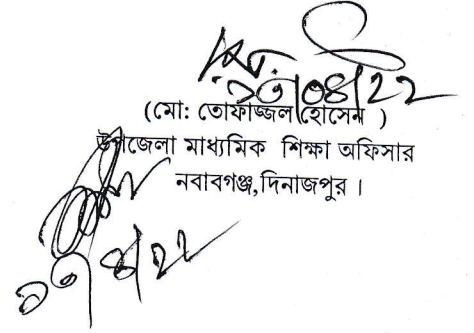 ১৩/০৪/২২
(মো: তোফাজ্জল হোসেন )
উপজেলা মাধ্যমিক শিক্ষা অফিসার
নবাবগঞ্জ,দিনাজপুর ।